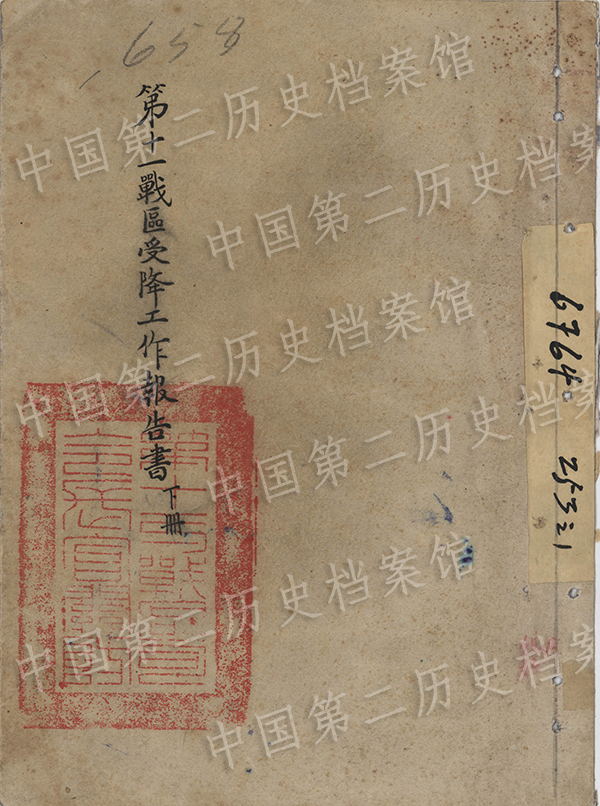 658
第十一戰區受降工作報告書 下冊
6764
中国第二历史档案馆
中国第二历史档案
中国第二历史档案馆
中国第二历史档案
中国第二历史档案馆
中国第二历史档案